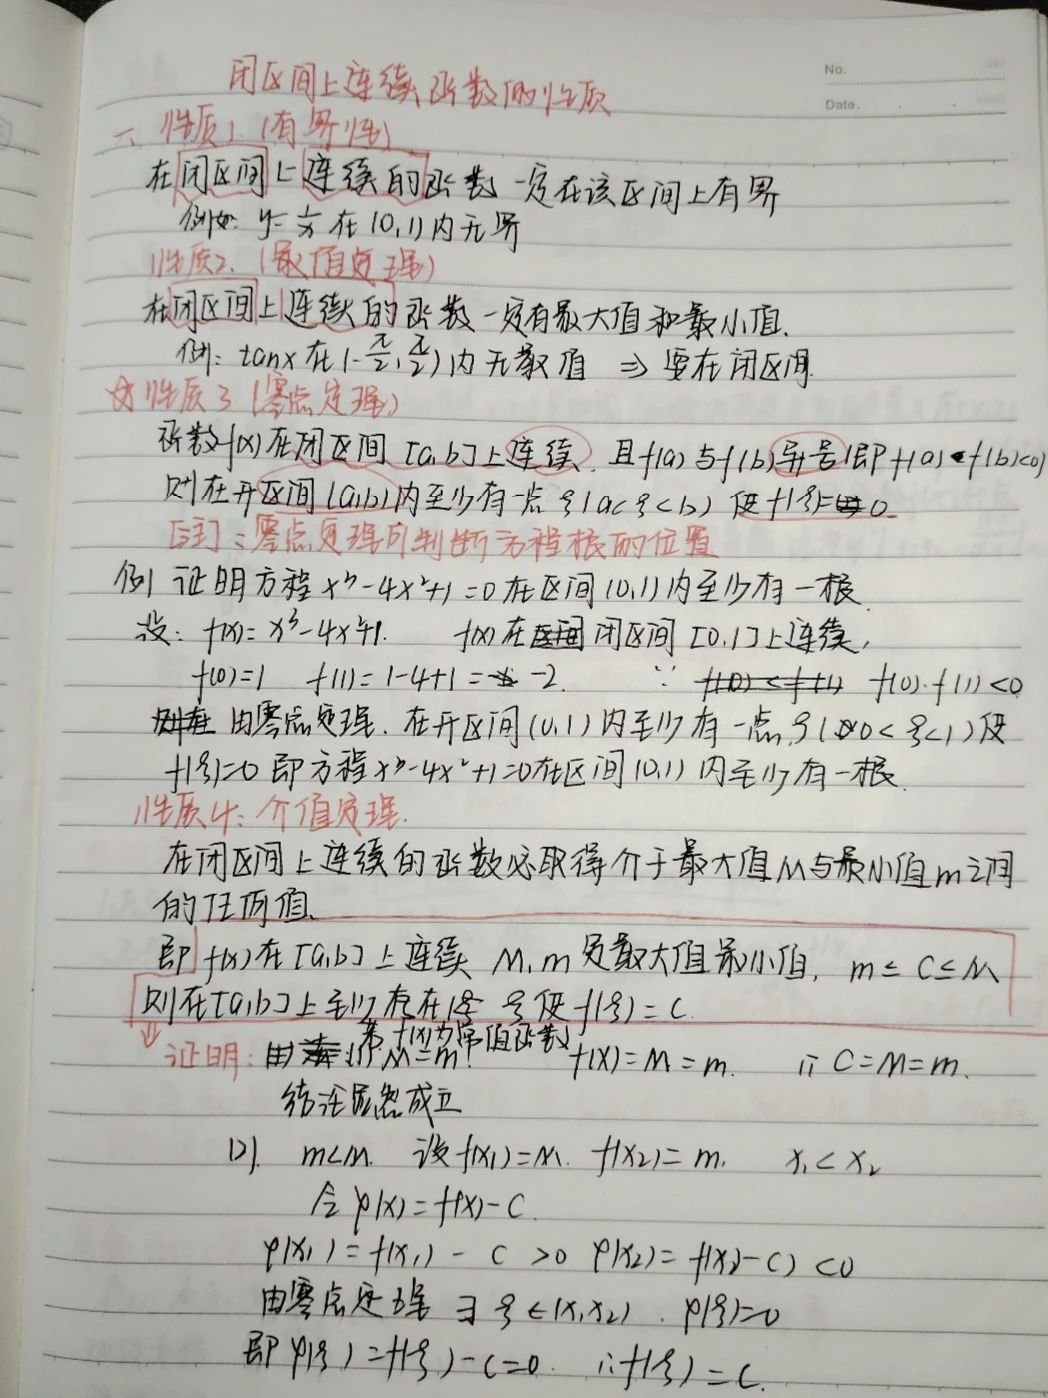 No.
Date.
闭区间上连续函数的性质
一、性质1.(有界性)
在闭区间上连续的函数一定在该区间上有界
例如: y=1/x 在(0,1)内无界
性质2.(最值定理)
在闭区间上连续的函数一定有最大值和最小值.
例: tanx在(-π/2,π/2)内无最值 ⇒ 要在闭区间.
☆性质3(零点定理)
函数f(x)在闭区间[a,b]上连续,且f(a)与f(b)异号(即f(a)·f(b)<0)
则在开区间(a,b)内至少有一点ξ(a<ξ<b)使f(ξ)=0
[注]:零点定理可判断方程根的位置
例1 证明方程x³-4x²+1=0在区间(0,1)内至少有一根.
设: f(x)=x³-4x²+1. f(x)在闭区间[0,1]上连续,
f(0)=1 f(1)=1-4+1=-2. ∵ f(0)·f(1)<0
由零点定理.在开区间(0,1)内至少有一点,ξ(0<ξ<1)使
f(ξ)=0 即方程x³-4x²+1=0在区间(0,1)内至少有一根.
性质4:介值定理.
在闭区间上连续的函数必取得介于最大值M与最小值m之间
的任何值.
即f(x)在[a,b]上连续 M,m是最大值最小值, m≤C≤M
则在[a,b]上至少存在1个ξ使f(ξ)=C.
若f(x)为常值函数
证明: (1) M=m! f(x)=M=m. ∴ C=M=m.
结论显然成立
(2). m<M. 设f(x₁)=M. f(x₂)=m. x₁<x₂
令φ(x)=f(x)-C.
φ(x₁)=f(x₁)-C>0 φ(x₂)=f(x₂-C)<0
由零点定理∃ξ∈(x₁x₂). φ(ξ)=0
即φ(ξ)=f(ξ)-C=0. ∴f(ξ)=C.